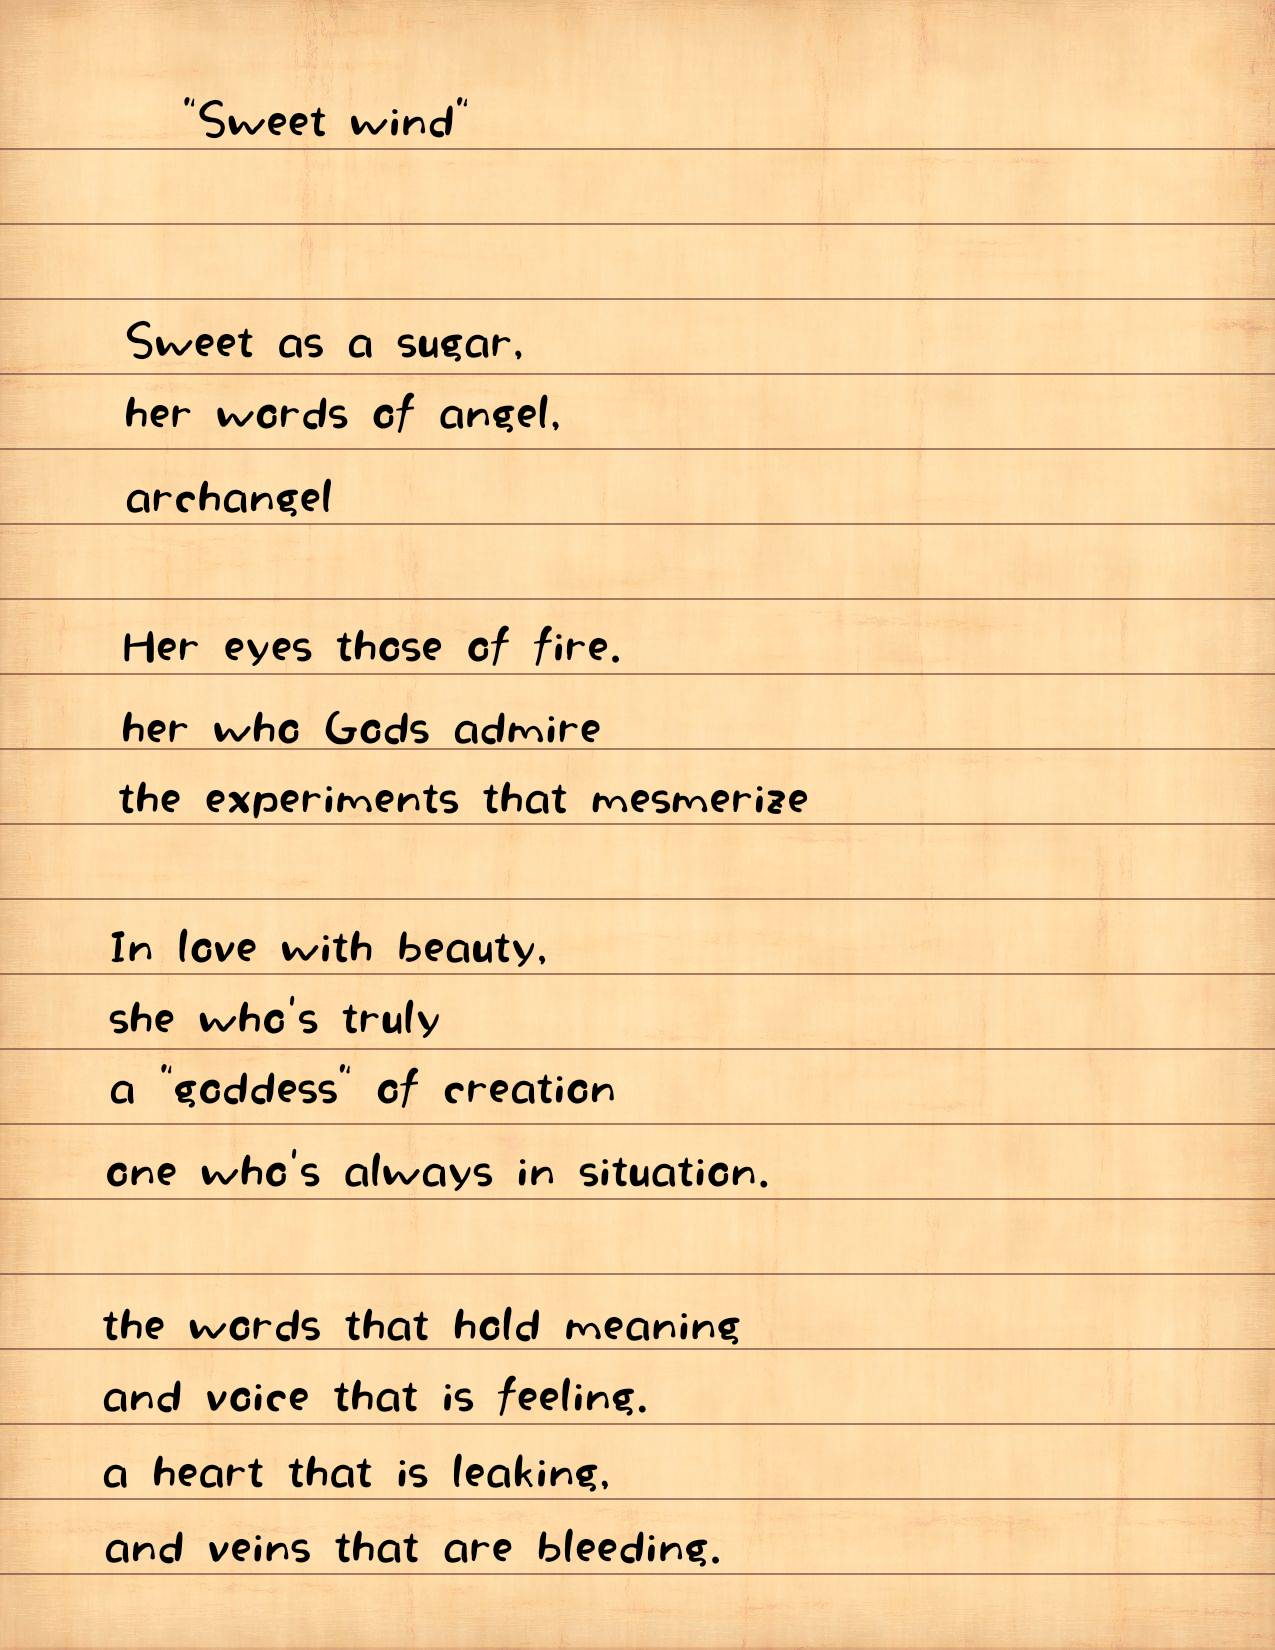 "Sweet wind"
Sweet as a sugar,
her words of angel,
archangel
Her eyes those of fire.
her who Gods admire
the experiments that mesmerize
In love with beauty,
she who's truly
a "goddess" of creation
one who's always in situation.
the words that hold meaning
and voice that is feeling.
a heart that is leaking,
and veins that are bleeding.